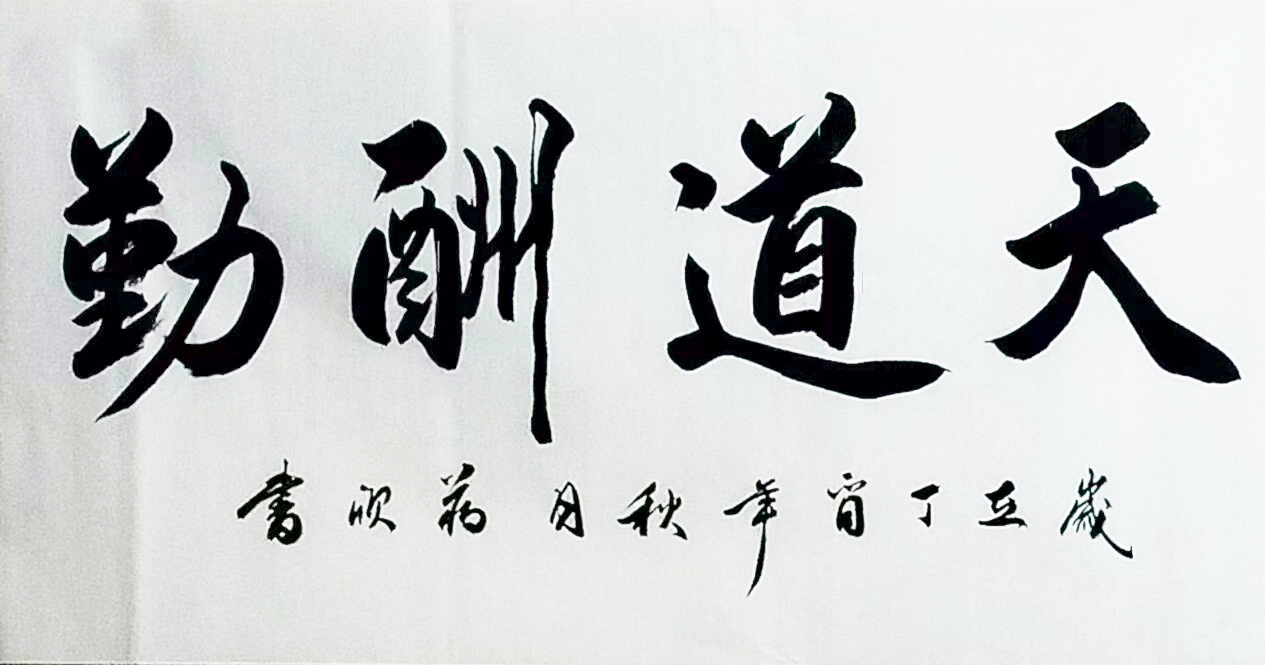 天道酬勤
歲在丁酉年秋月書